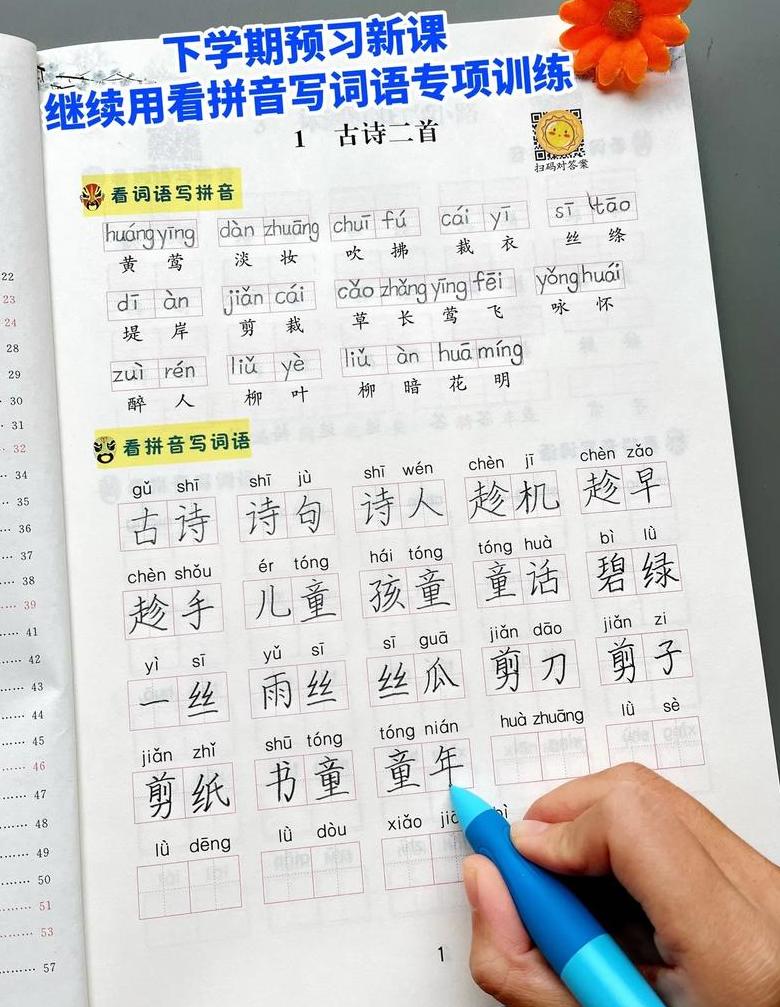 下学期预习新课
继续用看拼音写词语专项训练
1 古诗二首
扫码对答案
看词语写拼音
huáng yīng dàn zhuāng chuī fú cái yī sī tāo
黄莺 淡妆 吹拂 裁衣 丝绦
dī àn jiǎn cái cǎo zhǎng yīng fēi yǒng huái
堤岸 剪裁 草长莺飞 咏怀
zuì rén liǔ yè liǔ àn huā míng
醉人 柳叶 柳暗花明
看拼音写词语
gǔ shī shī jù shī wén chèn jī chèn zǎo
古诗 诗句 诗人 趁机 趁早
chèn shǒu ér tóng hái tóng tóng huà bì lǜ
趁手 儿童 孩童 童话 碧绿
yì sī yǔ sī sī guā jiǎn dāo jiǎn zi
一丝 雨丝 丝瓜 剪刀 剪子
jiǎn zhǐ shū tóng tóng nián huà zhuāng lǜ sè
剪纸 书童 童年
lǜ dēng lǜ dòu xiǎo bì
1
22
23
24
28
29
30
31
32
34
35
36
37
38
39
41
42
43
44
45
46
47
48
49
50
51
53
57